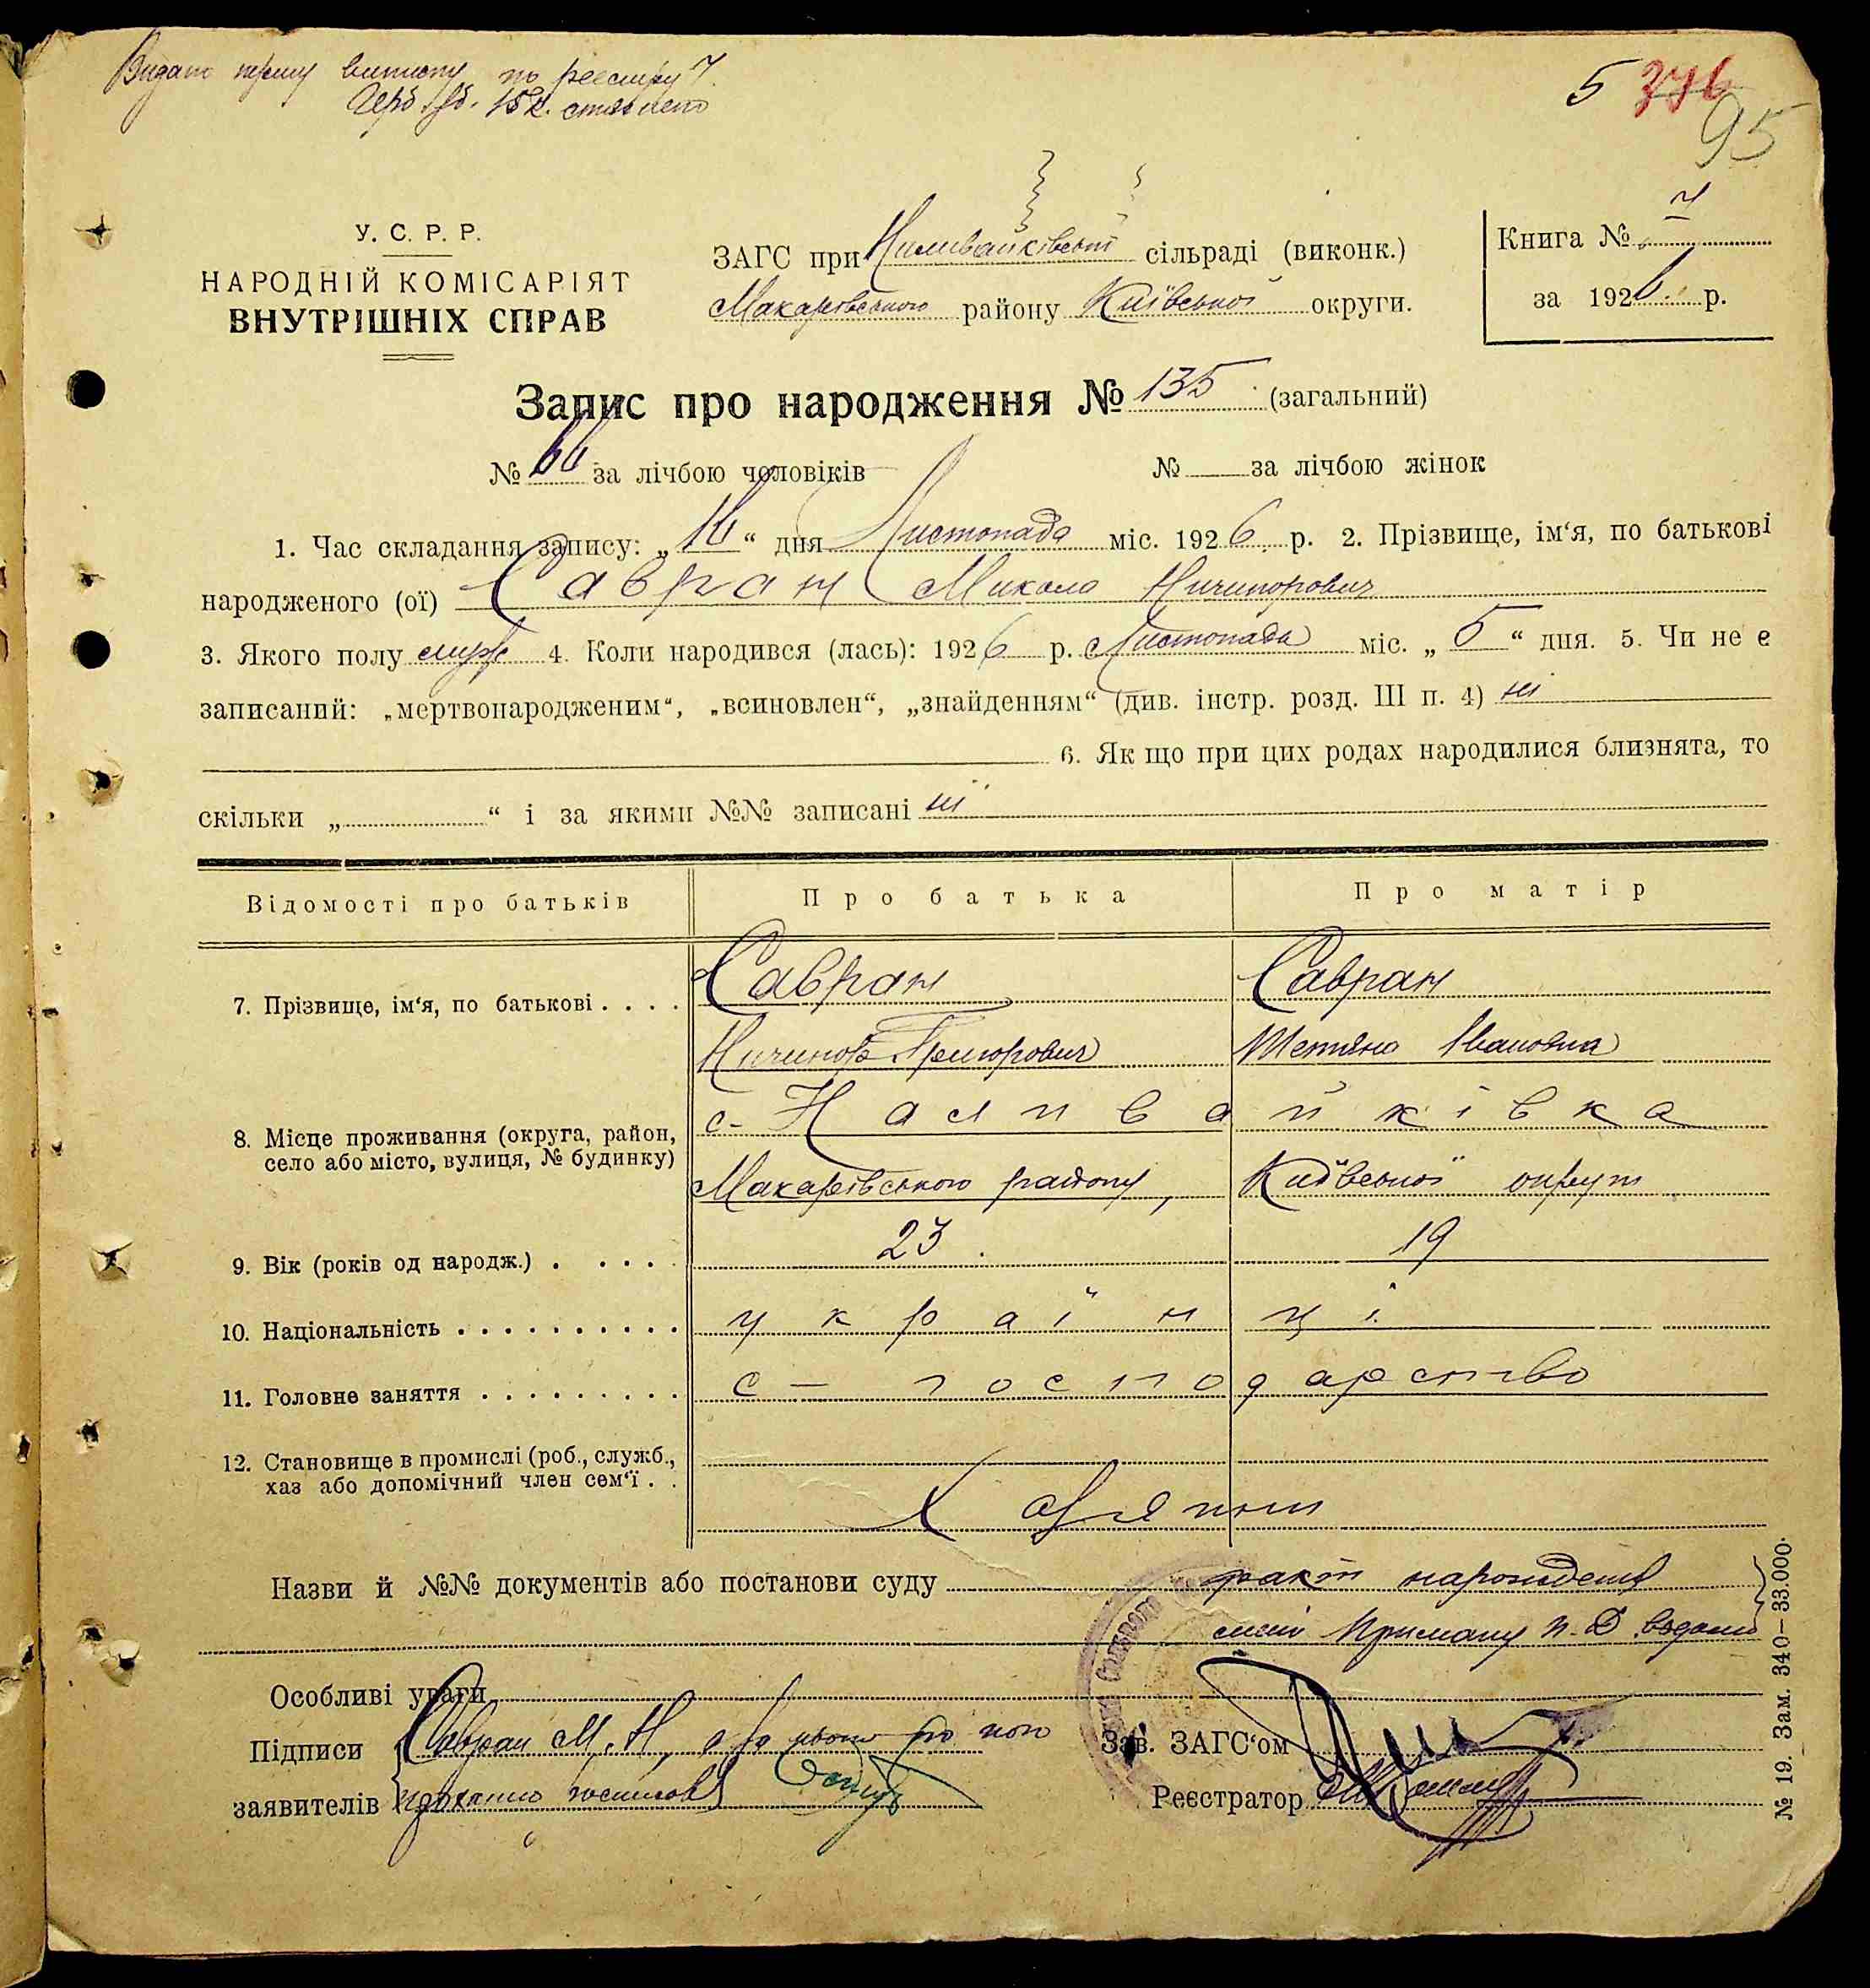 Видано першу виписку по реєстру 7
5 376
95
У. С. Р. Р.
НАРОДНІЙ КОМІСАРІЯТ
ВНУТРІШНІХ СПРАВ
ЗАГС при Наливайківській сільраді (виконк.)
Макарівського району Київської округи.
Книга №
за 1926 р.
Запис про народження № 135 (загальний)
№ 66 за лічбою чоловіків № за лічбою жінок
1. Час складання запису: „16“ дня Листопада міс. 1926 р. 2. Прізвище, ім‘я, по батькові
народженого (ої) Савран Микола Ничипорович
3. Якого полу муж 4. Коли народився (лась): 1926 р. Листопада міс. „5“ дня. 5. Чи не є
записаний: „мертвонародженим“, „всиновлен“, „знайденням“ (див. інстр. розд. III п. 4) ні
6. Як що при цих родах народилися близнята, то
скільки „ “ і за якими №№ записані ні
Відомості про батьків Про батька Про матір
7. Прізвище, ім‘я, по батькові . . . . Савран Савран
Ничипор Григорович Тетяна Івановна
8. Місце проживання (округа, район, село або місто, вулиця, № будинку) с- Наливайківка
Макарівського району, Київської округи
9. Вік (років од народж.) . . . . . 23. 19
10. Національність . . . . . . . . . . українці
11. Головне заняття . . . . . . . . . с – господарство
12. Становище в промислі (роб., служб.,
хаз або допомічний член сем‘ї . .
Назви й №№ документів або постанови суду факт народження
Особливі уваги
Підписи Савран М. Н, а за нього по його
заявителів
Зав. ЗАГС‘ом
Реєстратор
№ 19. Зам. 340–33.000.